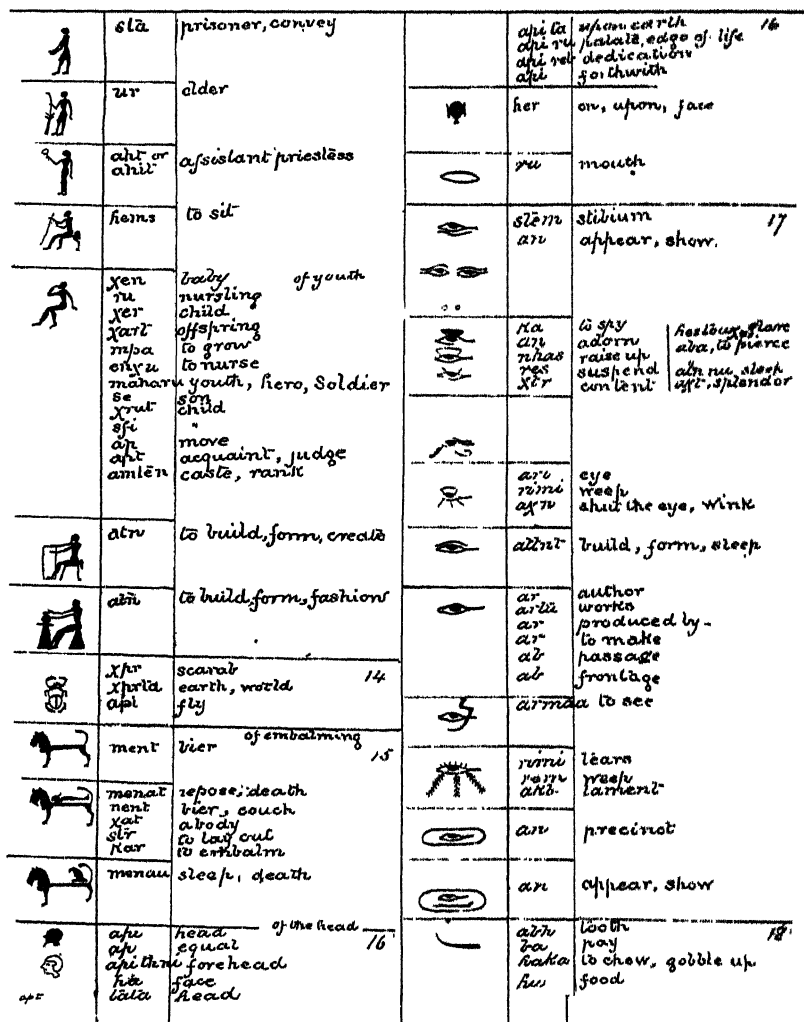 sta prisoner, convey
ur elder
aht or assistant priestess
ahit
hems to sit
of youth
xen baby
ru nursling
xer child
xart offspring
mpa to grow
enxu to nurse
maharu youth, hero, Soldier
se son
xrut child
sfi "
ap move
apt acquaint, judge
amten caste, rank
atn to build, form, create
atn to build, form, fashion
xpr scarab 14
xprta earth, world
api fly
of embalming
ment bier 15
menat repose, death
nent bier, couch
xat abody
str to lay out
kar to embalm
menau sleep, death
of the head
api head 16
ap equal
apithni forehead
ha face
apt tata head
api ta upon earth 16
api ru palate, edge of life
api ret dedication
api forthwith
her on, upon, face
ru mouth
stem stibium 17
an appear, show.
ka to spy
an adorn aba, to pierce
nhas raise up
res suspend atn nu, sleep
xtr content axt, splendor
ari eye
rimi weep
axn shut the eye, wink
atnt build, form, sleep
ar author
artu works
ar produced by -
ar to make
ab passage
ab frontage
armaa to see
rimi tears
rem weep
akb lament
an precinct
an appear, show
abh tooth 18
ba pay
haka to chow, gobble up
hu food